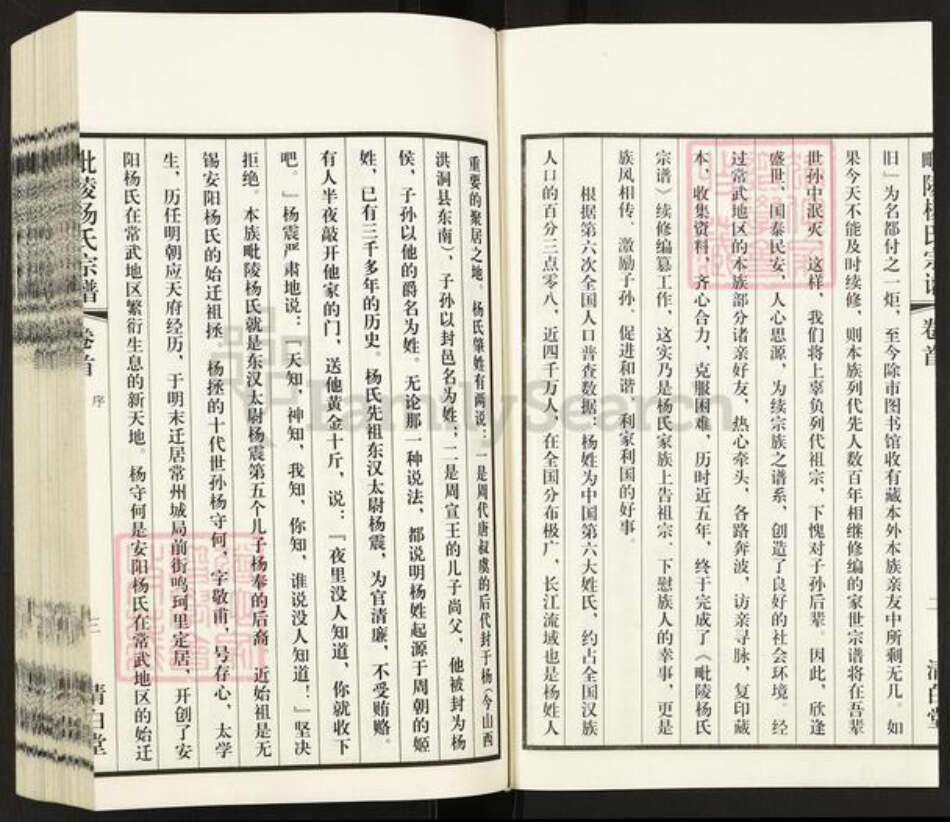 毗陵杨氏宗谱 卷首
二 清白堂
旧』为名都付之一炬，至今除市图书馆收有藏本外本族亲友中所剩无几。如
果今天不能及时续修，则本族列代先人数百年相继修编的家世宗谱将在吾辈
世孙中泯灭。这样，我们将上辜负列代祖宗、下愧对子孙后辈。因此，欣逢
盛世、国泰民安、人心思源，为续宗族之谱系，创造了良好的社会环境。经
过常武地区的本族部分诸亲好友，热心牵头、各路奔波，访亲寻脉，复印藏
本、收集资料，齐心合力，克服困难，历时近五年，终于完成了《毗陵杨氏
宗谱》续修编纂工作，这实乃是杨氏家族上告祖宗、下慰族人的幸事，更是
族风相传、激励子孙、促进和谐、利家利国的好事。
根据第六次全国人口普查数据：杨姓为中国第六大姓氏，约占全国汉族
人口的百分三点零八，近四千万人，在全国分布极广，长江流域也是杨姓人
重要的聚居之地。杨氏肇姓有两说：一是周代唐叔虞的后代封于杨（今山西
洪洞县东南），子孙以封邑名为姓；二是周宣王的儿子尚父，他被封为杨
侯，子孙以他的爵名为姓。无论那一种说法，都说明杨姓起源于周朝的姬
姓，已有三千多年的历史。杨氏先祖东汉太尉杨震，为官清廉，不受贿赂。
有人半夜敲开他家的门，送他黄金十斤，说：『夜里没人知道，你就收下
吧。』杨震严肃地说：『天知，神知，我知，你知，谁说没人知道！』坚决
拒绝。本族毗陵杨氏就是东汉太尉杨震第五个儿子杨奉的后裔，近始祖是无
锡安阳杨氏的始迁祖拯。杨拯的十代世孙杨守何，字敬甫，号存心，太学
生，历任明朝应天府经历，于明末迁居常州城局前街鸣珂里定居，开创了安
阳杨氏在常武地区繁衍生息的新天地。杨守何是安阳杨氏在常武地区的始迁
毗陵杨氏宗谱 卷首 序
三 清白堂
FamilySearch